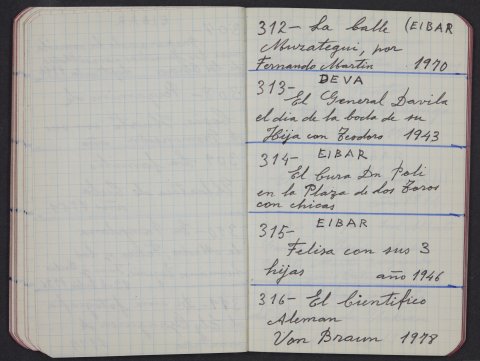 312- La Calle (EIBAR
Muzategui, por
Fernando Martin 1970
313- DEVA
El General Davila
el dia de la boda de su
Hija con Teodoro 1943
314- EIBAR
El Cura Dn Poli
en la Plaza de dos Toros
con chicas
315- EIBAR
Felisa con sus 3
hijas año 1946
316- El Cientifico
Aleman
Von Braun 1978